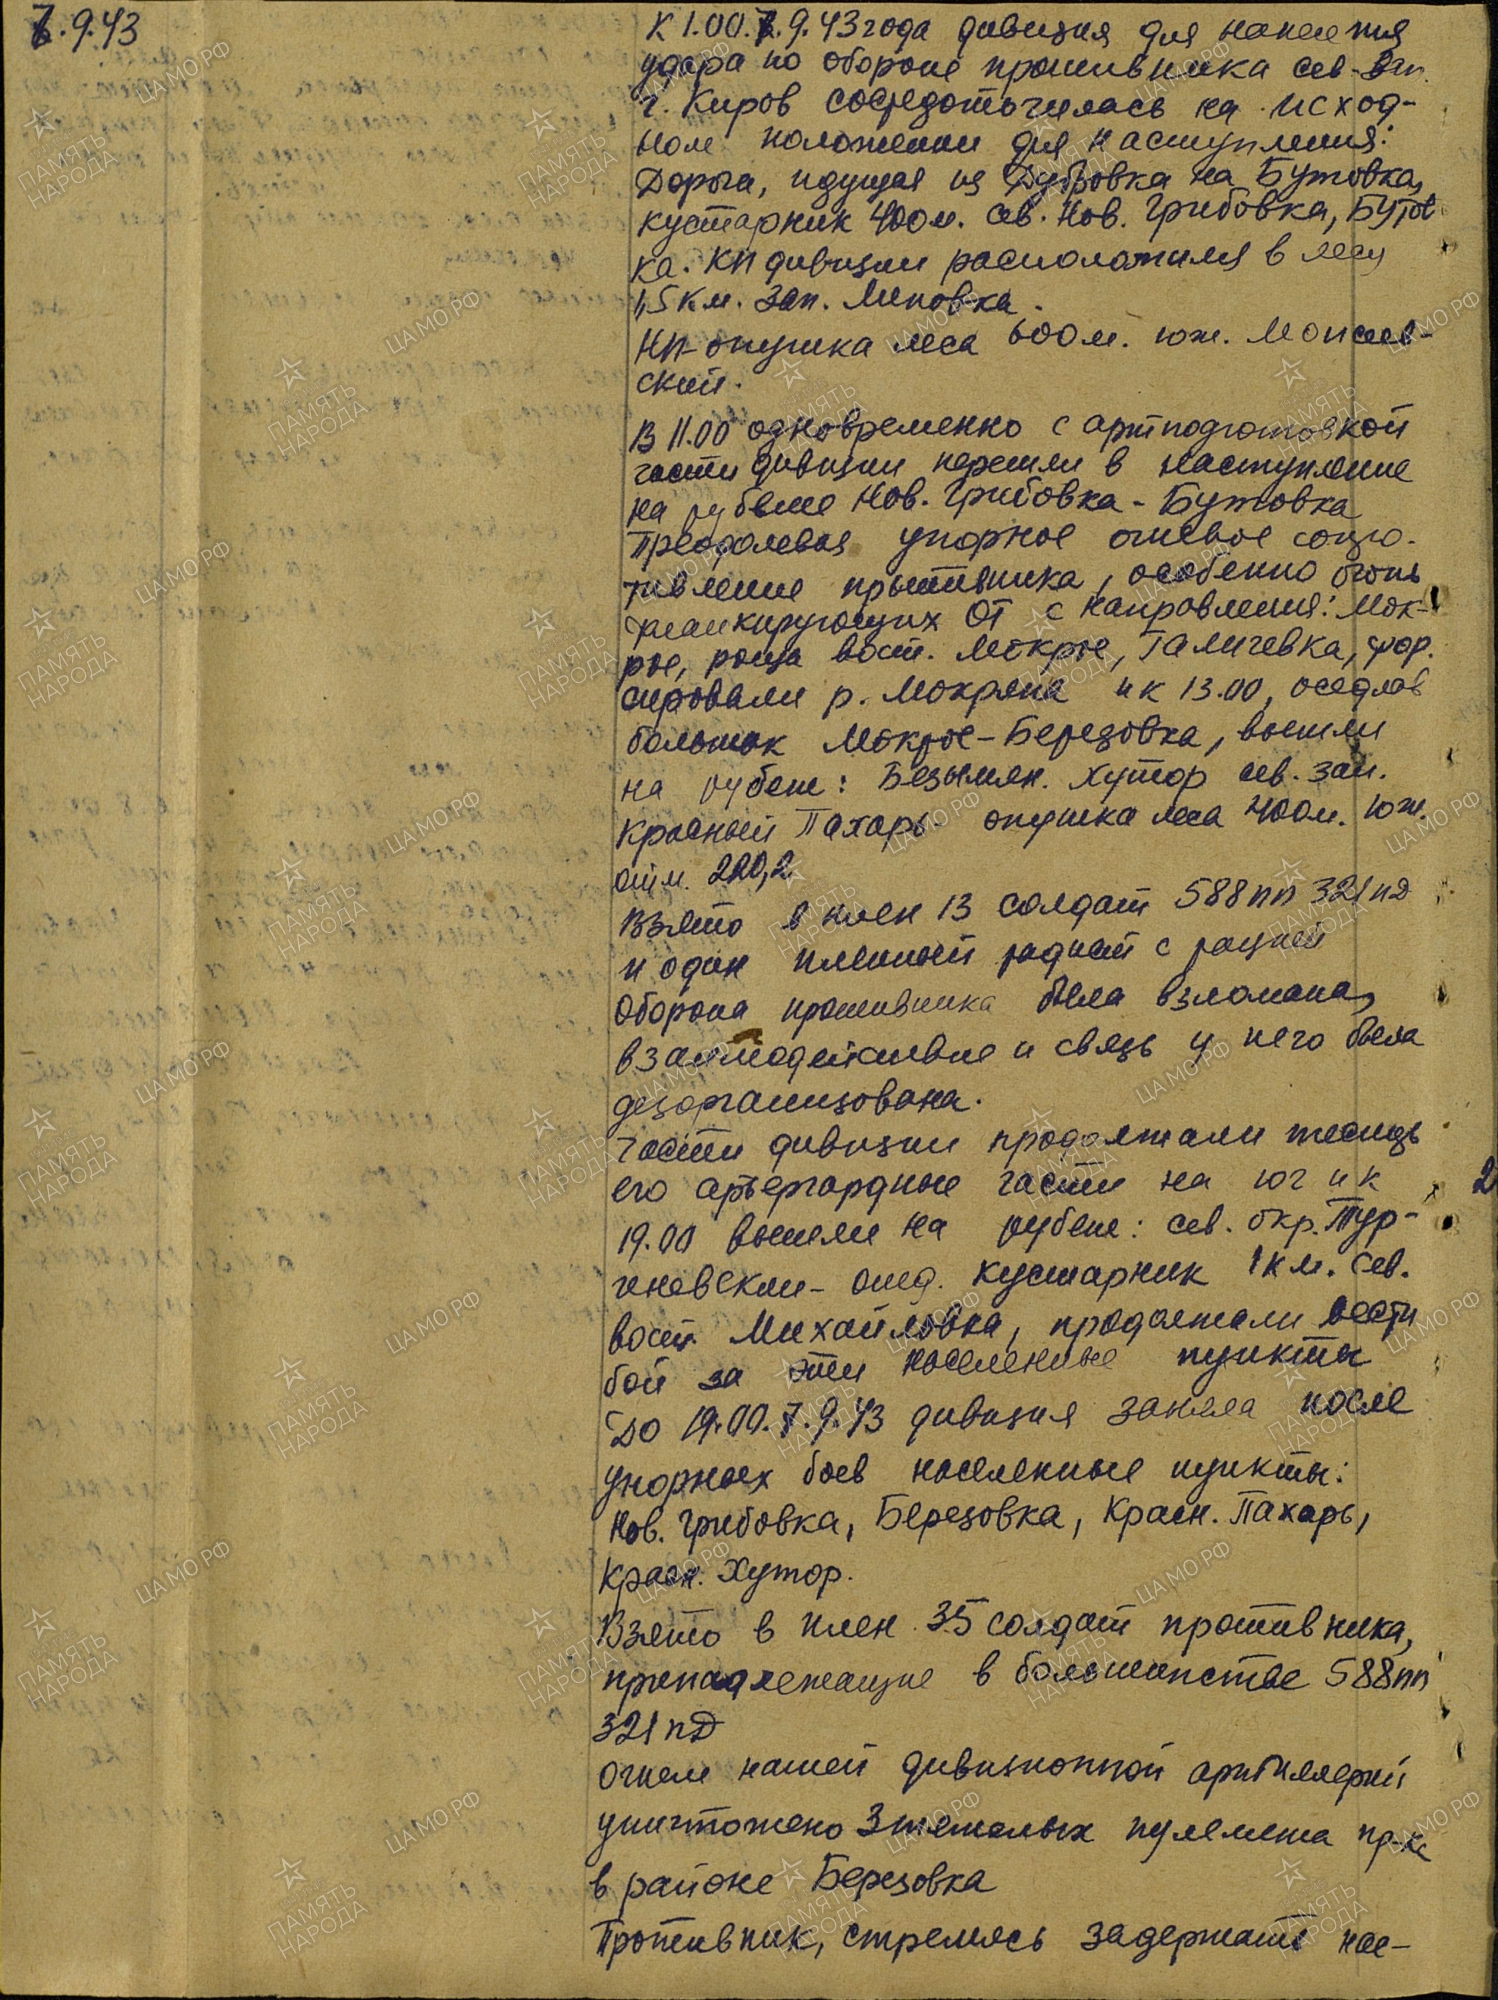 7.9.43
К 1.00.7.9.43 года дивизия для нанесения
удара по обороне противника сев.-зап.
г. Киров сосредоточилась на исход-
ном положении для наступления:
Дорога, идущая из Дубровка на Бутовка,
кустарник 400 м. сев. Нов. Грибовка, Бутов
ка. КП дивизии расположился в лесу
1,5 км. Зап. Липовка.
НП-опушка леса 600 м. юж. Моисеев-
ский.
В 11.00 одновременно с артподготовкой
части дивизии перешли в наступление
на рубеже Нов. Грибовка - Бутовка
Преодолевая упорное огневое сопро-
тивление противника, особенно огонь
фланкирующих ОТ с направления: Мок-
рое, роща вост. Мокрое, Галичевка, фор.
сировали р. Мокряна и к 13.00, оседлав
большак Мокрое-Березовка, вышли
на рубеж: Безымян. Хутор сев. зап.
Красный Пахарь - опушка леса 400 м. Юж.
отм. 220,2
Взято в плен 13 солдат 588 пп 321 пд
и один пленный радист с рацией
Оборона противника была взломана,
взаимодействие и связь у него была
дезорганизована.
Части дивизии продолжали теснить
его арьергардные части на юг и к
19.00 вышли на рубеж: сев. окр. Тур-
геневский - отд. кустарник 1 км. сев.
вост. Михайловка, продолжали вести
бой за эти населенные пункты
До 19.00.7.9.43 дивизия заняла после
упорных боев населенные пункты:
Нов. Грибовка, Березовка, Красн. Пахарь,
Красн. Хутор.
Взято в плен 35 солдат противника,
принадлежащие в большинстве 588 пп
321 пД
Огнем нашей дивизионной артиллерии
уничтожено 3 тяжелых пулемета пр-ка
в районе Березовка
Противник, стремясь задержать нас-
2